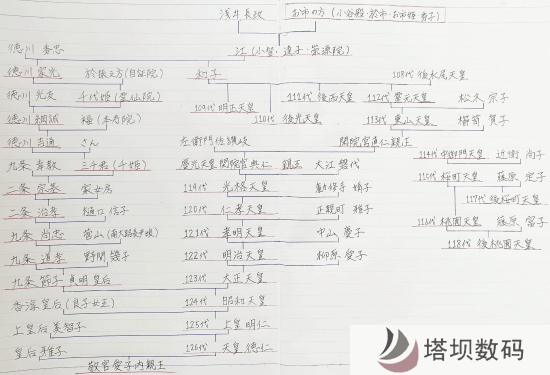 浅井長政 お市の方(小谷殿・於市・お市姫・秀子)
徳川 秀忠 江(小督・達子・崇源院)
徳川 家光 於振之方(自証院) 和子 108代 後水尾天皇
徳川 光友 千代姫(霊仙院) 109代 明正天皇 110代 後光天皇 111代 後西天皇 112代 霊元天皇 松木 宗子
徳川 綱誠 梅(本寿院) 113代 東山天皇 櫛笥 賀子
徳川 吉通 さん 左衛門佐讃岐 閑院宮直仁親王
九条 幸教 三千君(千姫) 慶光天皇 閑院宮典仁 親王 大江 磐代 114代 中御門天皇 近衛 尚子
二条 宗基 家女房 119代 光格天皇 勧修寺 婧子 115代 桜町天皇 藤原 定子
二条 治孝 樋口 信子 120代 仁孝天皇 正親町 雅子 117代 後桜町天皇
九条 尚忠 菅山(南大路長尹娘) 121代 孝明天皇 中山 慶子 116代 桃園天皇 藤原 富子
九条 道孝 野間 幾子 122代 明治天皇 柳原 愛子 118代 後桃園天皇
九条 節子 貞明皇后 123代 大正天皇
香淳皇后(良子女王) 124代 昭和天皇
上皇后 美智子 125代 上皇 明仁
皇后 雅子 126代 天皇 徳仁
敬宮愛子内親王
塔坝数码